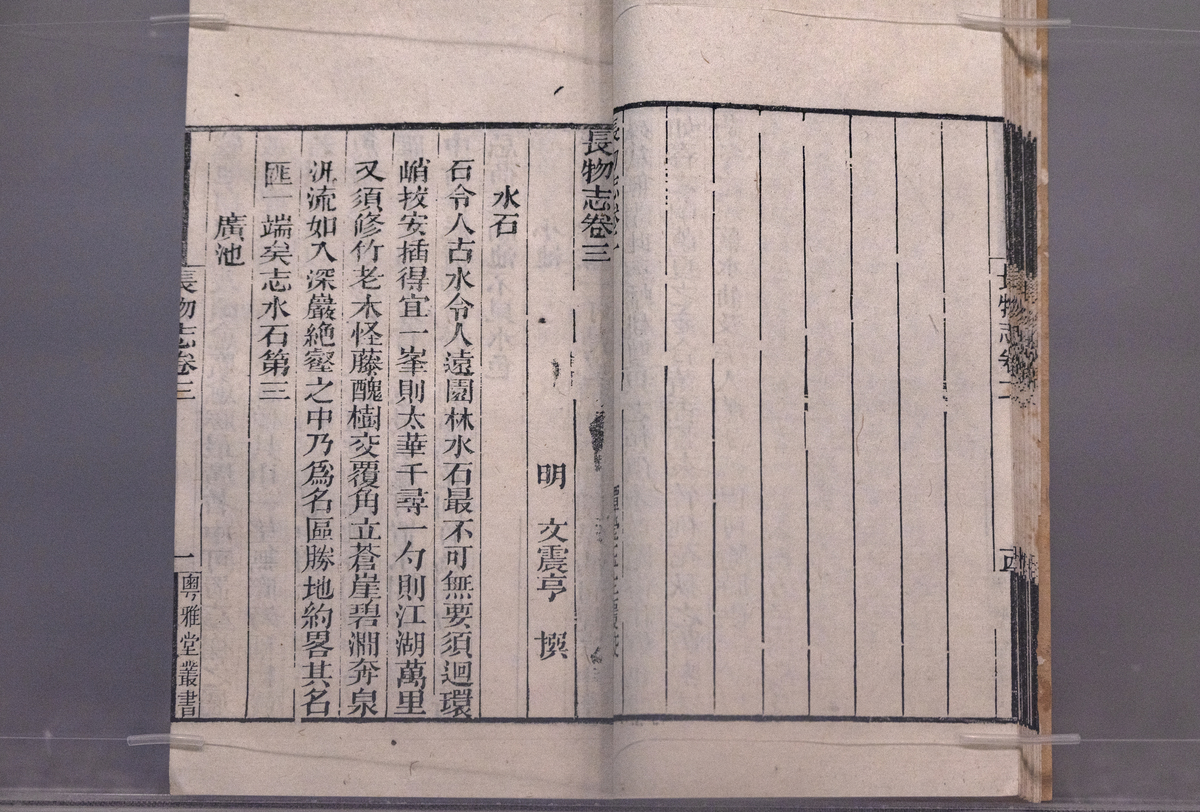 長物志卷
長物志卷三
明 文震亨 撰
水石
石令人古水令人遠園林水石最不可無要須迴環
峭拔安插得宜一峯則太華千尋一勺則江湖萬里
又須修竹老木怪藤醜樹交覆角立蒼崖碧澗奔泉
汛流如入深巖絶壑之中乃爲名區勝地約畧其名
匪一端矣志水石第三
廣池
長物志卷三
一
粵雅堂叢書